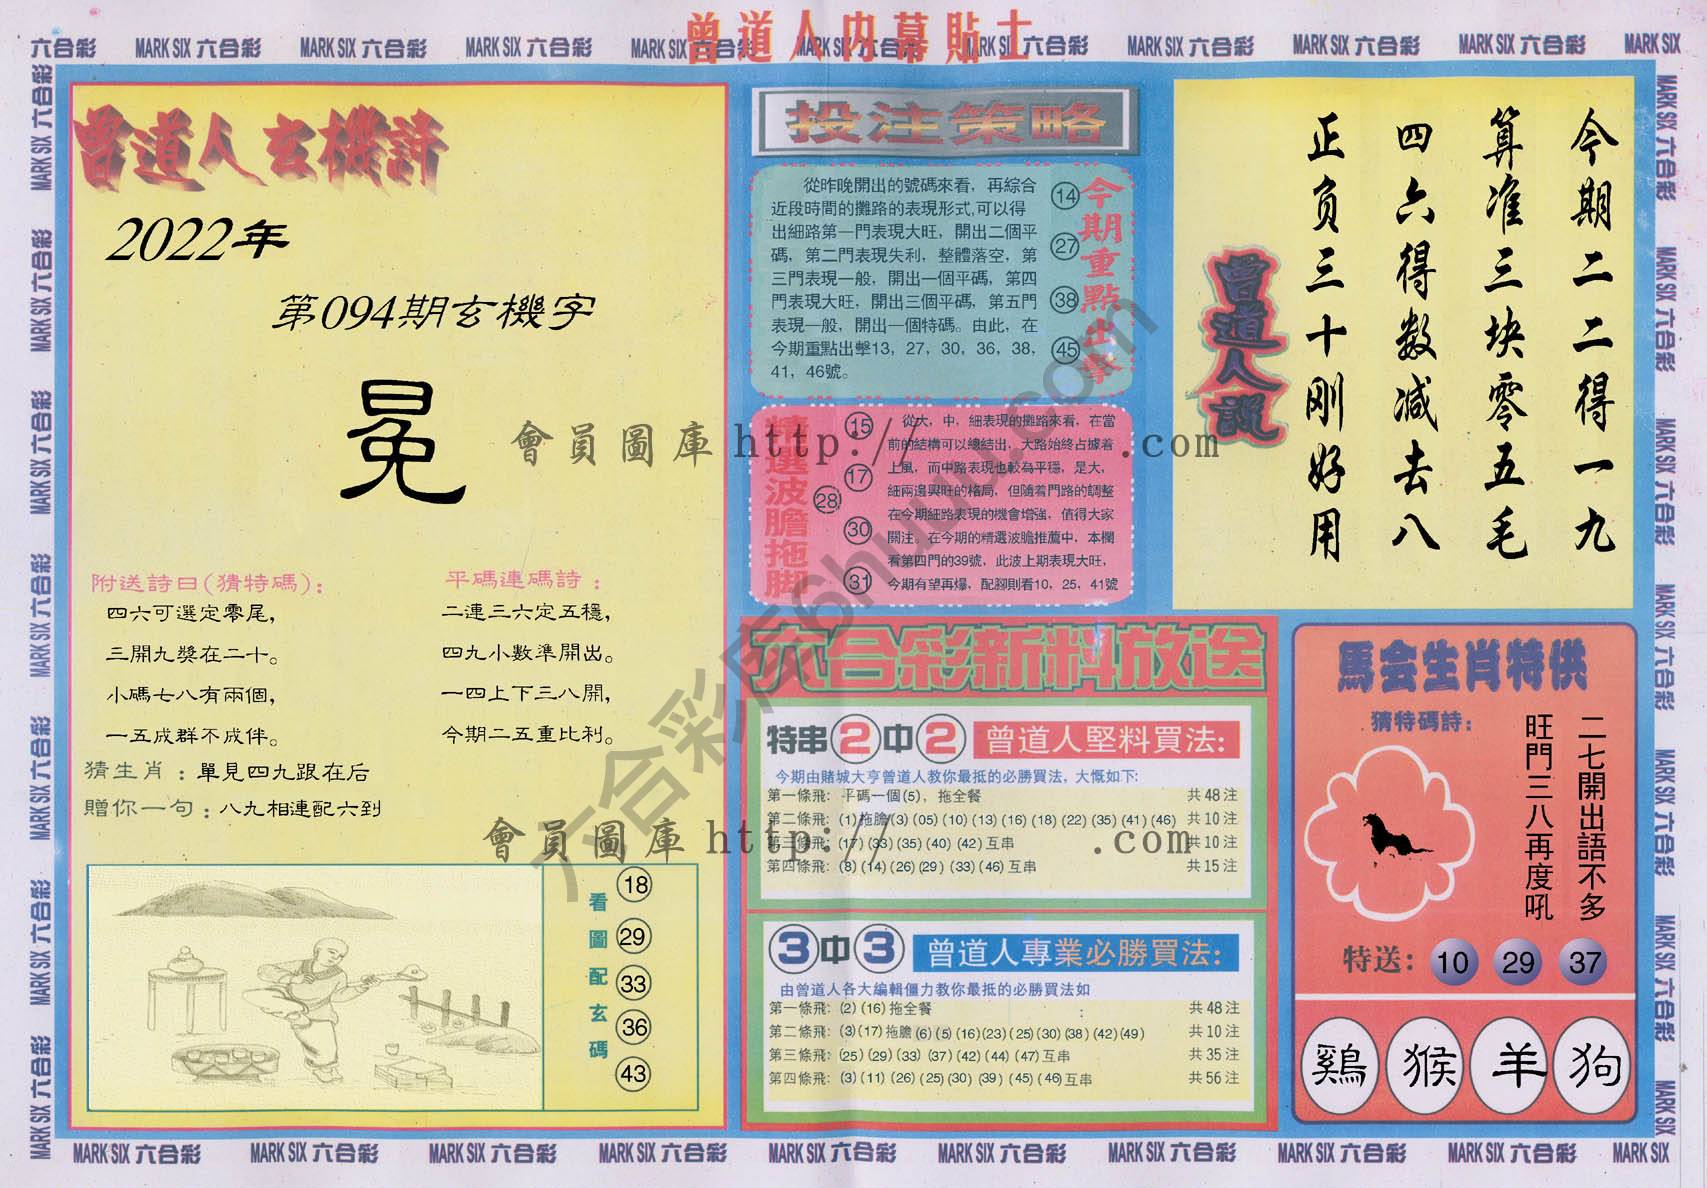 曾道人内幕貼士
六合彩 MARK SIX 六合彩 MARK SIX 六合彩 MARK SIX 六合彩 MARK SIX 六合彩 MARK SIX 六合彩 MARK SIX 六合彩 MARK SIX 六合彩 MARK SIX 六合彩 MARK SIX 六合彩 MARK SIX
曾道人玄機詩
2022年
第094期玄機字
冕
附送詩曰(猜特碼):
四六可選定零尾,
三開九獎在二十。
小碼七八有兩個,
一五成群不成伴。
平碼連碼詩:
二連三六定五穩,
四九小數準開出。
一四上下三八開,
今期二五重比利。
猜生肖:單見四九跟在后
贈你一句:八九相連配六到
看圖配玄碼
18
29
33
36
43
投注策略
從昨晚開出的號碼來看,再綜合
近段時間的攤路的表現形式,可以得
出細路第一門表現大旺,開出二個平
碼,第二門表現失利,整體落空,第
三門表現一般,開出一個平碼,第四
門表現大旺,開出三個平碼,第五門
表現一般,開出一個特碼。由此,在
今期重點出擊13,27,30,36,38,
41,46號。
14
27
38
45
今期重點出擊
精選波膽拖脚
15
17
28
30
31
從大,中,細表現的攤路來看,在當
前的結構可以總結出,大路始終占據着
上風,而中路表現也較為平穩,是大,
細兩邊興旺的格局,但隨着門路的調整
在今期細路表現的機會增強,值得大家
關注。在今期的精選波膽推薦中,本欄
看第四門的39號,此波上期表現大旺,
今期有望再爆,配腳則看10,25,41號
今期二二得一九
算准三块零五毛
四六得数减去八
正负三十刚好用
曾道人説
六合彩新料放送
特串2中2 曾道人堅料買法:
今期由賭城大亨曾道人教你最抵的必勝買法,大慨如下:
第一條飛: 平碼一個(5),拖全餐 共48注
第二條飛: (1)拖膽(3)(05)(10)(13)(16)(18)(22)(35)(41)(46) 共10注
第三條飛: (17)(33)(35)(40)(42)互串 共10注
第四條飛: (8)(14)(26)(29)(33)(46)互串 共15注
3中3 曾道人專業必勝買法:
由曾道人各大編輯僵力教你最抵的必勝買法如
第一條飛: (2)(16)拖全餐 共48注
第二條飛: (3)(17)拖膽(6)(5)(16)(23)(25)(30)(38)(42)(49) 共10注
第三條飛: (25)(29)(33)(37)(42)(44)(47)互串 共35注
第四條飛: (3)(11)(26)(25)(30)(39)(45)(46)互串 共56注
馬会生肖特供
猜特碼詩:
二七開出語不多
旺門三八再度吼
特送: 10 29 37
鷄 猴 羊 狗
會員圖庫 http:// .com
會員圖庫 http:// .com
六合彩库6huuu.com
MARK SIX 六合彩 MARK SIX 六合彩 MARK SIX 六合彩 MARK SIX 六合彩 MARK SIX 六合彩 MARK SIX 六合彩 MARK SIX 六合彩 MARK SIX 六合彩 MARK SIX 六合彩 MARK SIX